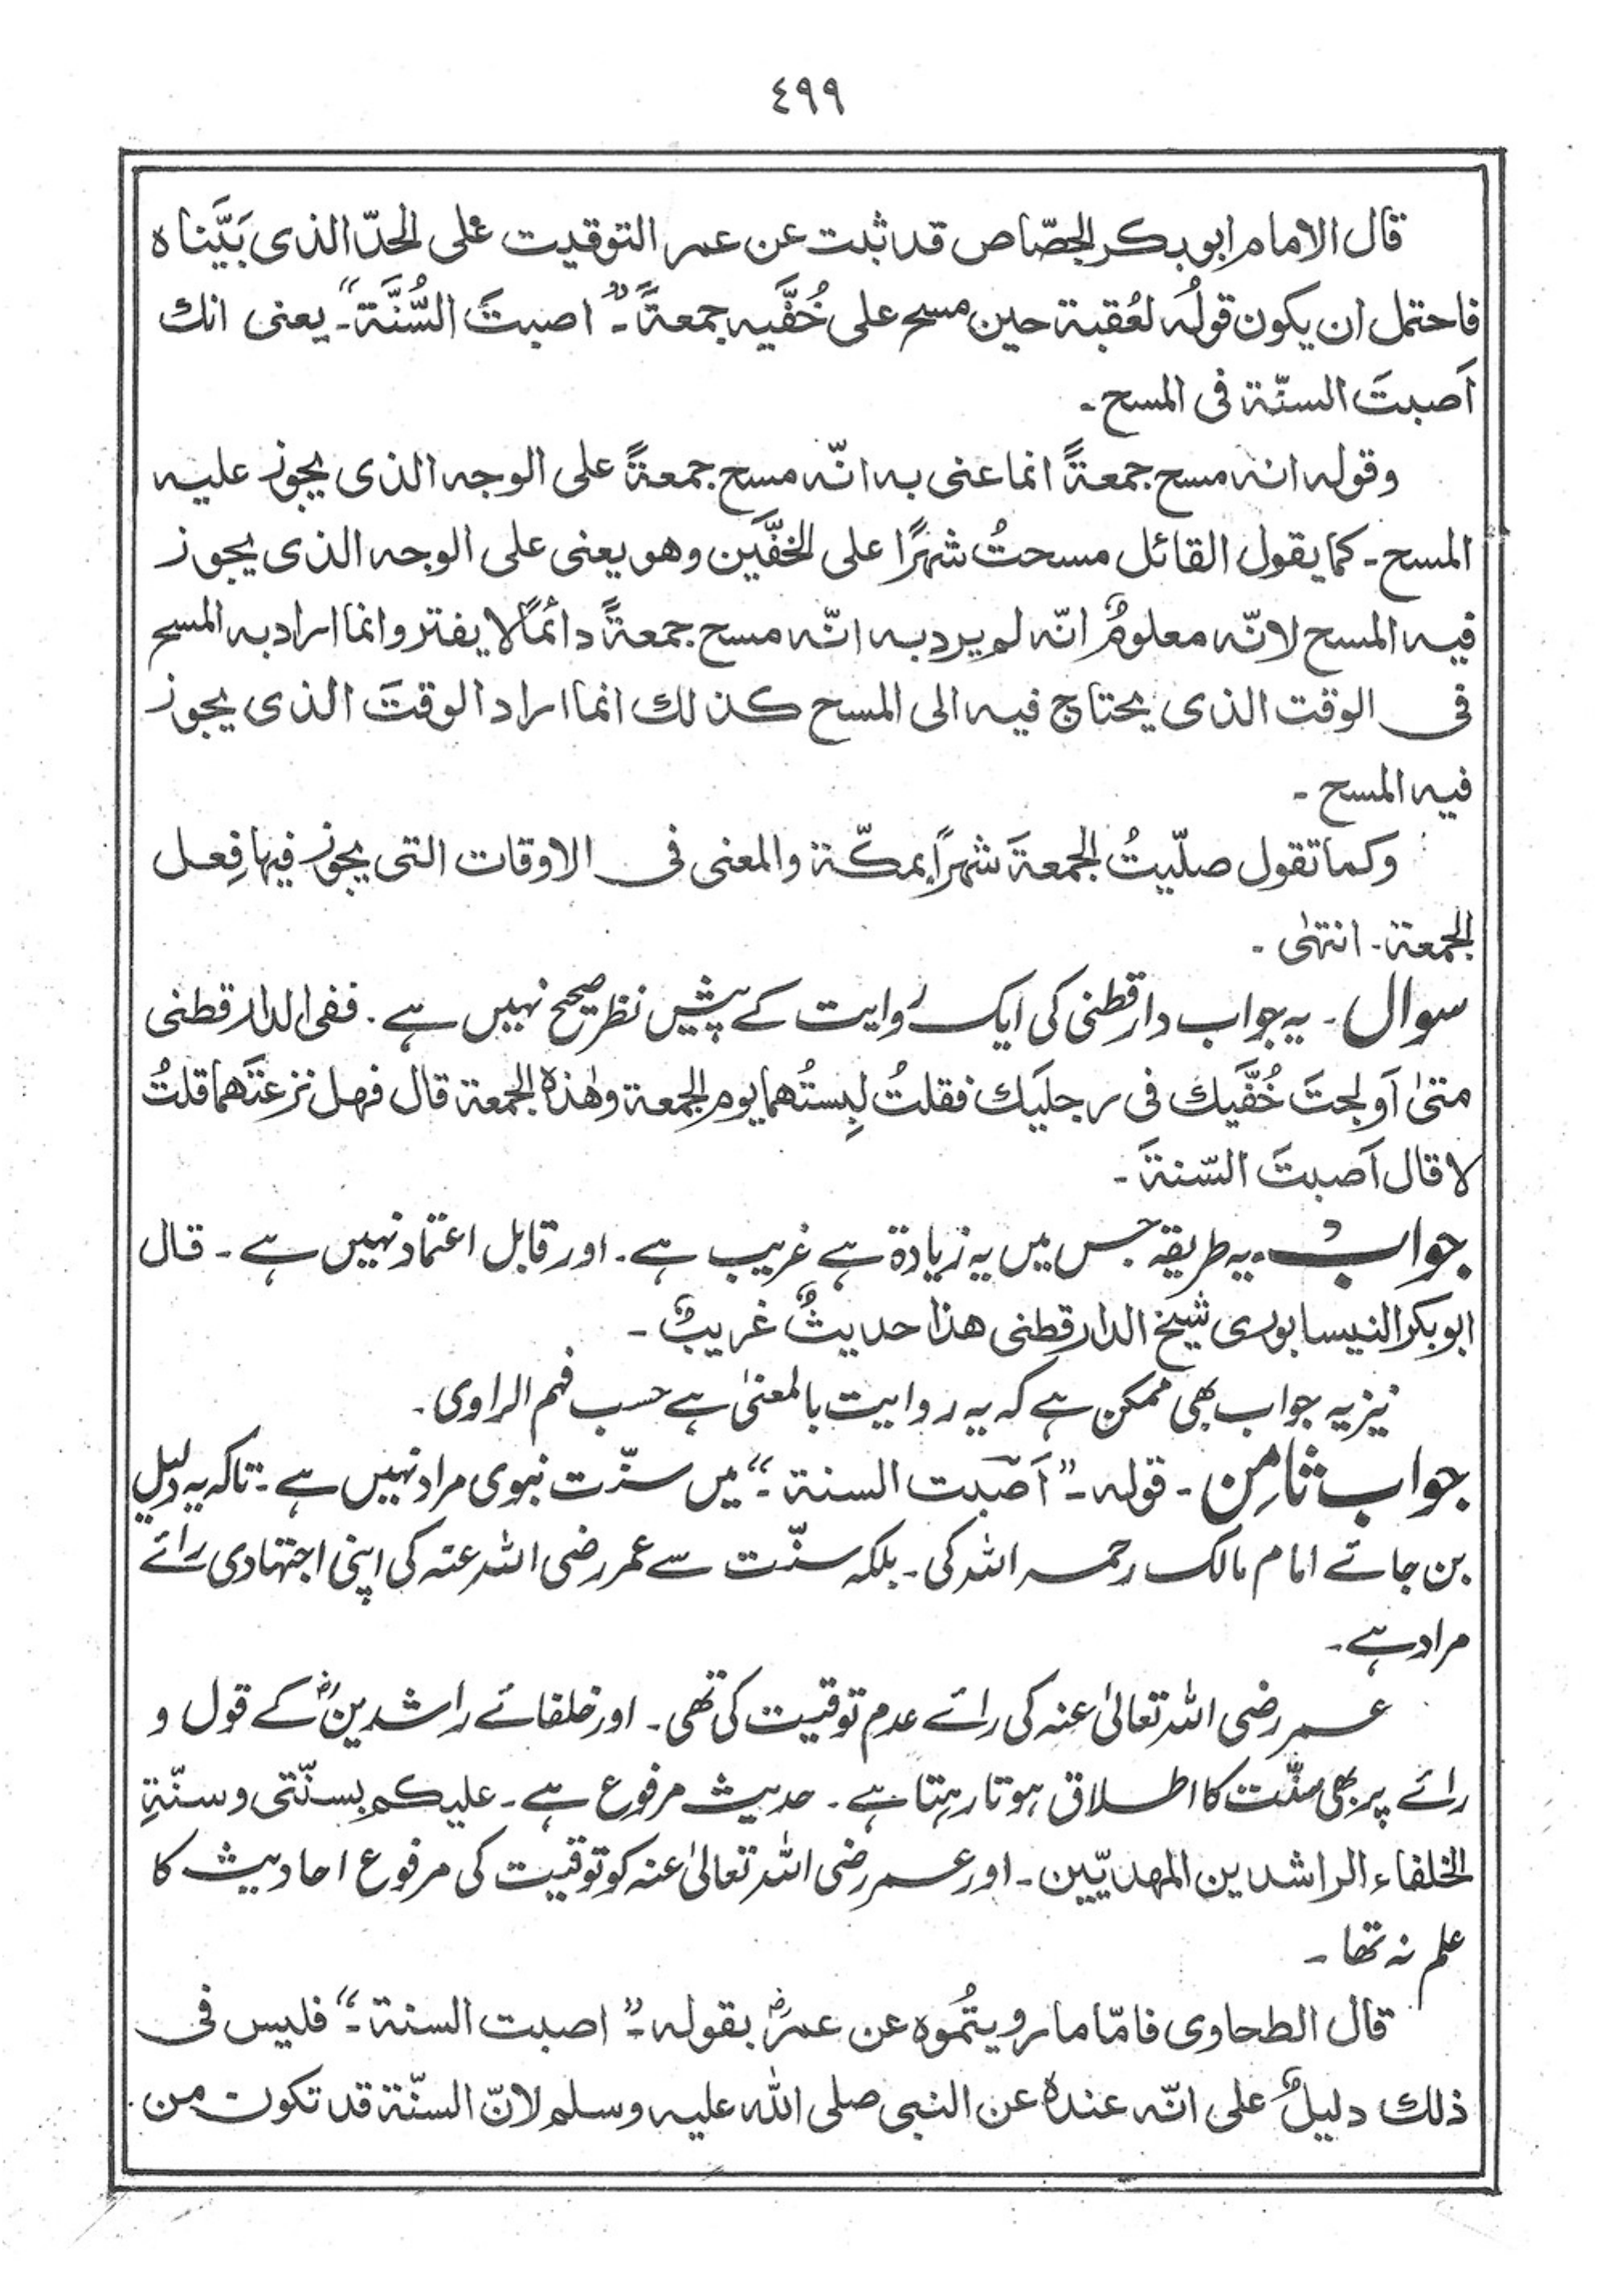 ٤٩٩
قال الامام ابوبكر الجصّاص قد ثبت عن عمر التوقيت على الحدّ الذى بَيَّناه
فاحتمل ان يكون قولُه لعُقبة حين مسح على خُفَّيه جمعةً ـ” اصبتَ السُّنَّة“ـ يعنى انك
اَصبتَ السنّة فى المسح ـ
وقوله انه مسح جمعةً انما عنى به انّه مسح جمعةً على الوجه الذى يجوز عليه
المسح ـ كما يقول القائل مسحتُ شهرًا على الخفَّين وهو يعنى على الوجه الذى يجوز
فيه المسح لانّه معلومٌ انّه لم يرد به انّه مسح جمعةً دائمًا لا يفتر وانما اراد به المسح
فى الوقت الذى يحتاج فيه الى المسح كذلك انما اراد الوقتَ الذى يجوز
فيه المسح ـ
وكما تقول صلّيتُ الجمعةَ شهرًا بمكّة والمعنى فى الاوقات التى يجوز فيها فِعل
الجمعة ـ انتهٰى ـ
سوال ـ یہ جواب دارقطنی کی ایک روایت کے پیش نظر صحیح نہیں ہے ۔ ففى الدارقطنى
متىٰ اَولجتَ خُفَّيك فى رجلَيك فقلتُ لبِستُهما يوم الجمعة وهٰذه الجمعة قال فهل نزعتَهما قلتُ
لا قال اَصبتَ السّنةَ ـ
جواب ـ یہ طریقہ جس میں یہ زیادۃ ہے غریب ہے ۔ اور قابل اعتماد نہیں ہے ـ قال
ابوبكر النيسابورى شيخ الدارقطنى هذا حديثٌ غريبٌ ـ
نیز یہ جواب بھی ممکن ہے کہ یہ روایت بالمعنیٰ ہے حسب فہم الراوی ۔
جواب ثامِن ـ قولہ ـ” اَصَبت السنة ـ“ میں سنّت نبوی مراد نہیں ہے ـ تاکہ یہ دلیل
بن جائے امام مالک رحمہ اللہ کی ـ بلکہ سنّت سے عمر رضی اللہ عنہ کی اپنی اجتہادی رائے
مراد ہے ـ
عمر رضی اللہ تعالیٰ عنہ کی رائے عدم توقیت کی تھی ـ اور خلفائے راشدینؓ کے قول و
رائے پر بھی سنّت کا اطلاق ہوتا رہتا ہے ۔ حدیث مرفوع ہے ـ عليكم بسنّتى و سنّةِ
الخلفاء الراشدين المهديّين ـ اور عمر رضی اللہ تعالیٰ عنہ کو توقیت کی مرفوع احادیث کا
علم نہ تھا ـ
قال الطحاوى فامّا ما رويتُموه عن عمرؓ بقوله ـ” اصبت السنة ـ“ فليس فى
ذلك دليلٌ على انّه عنده عن النبى صلى الله عليه وسلم لانّ السنّة قد تكون من